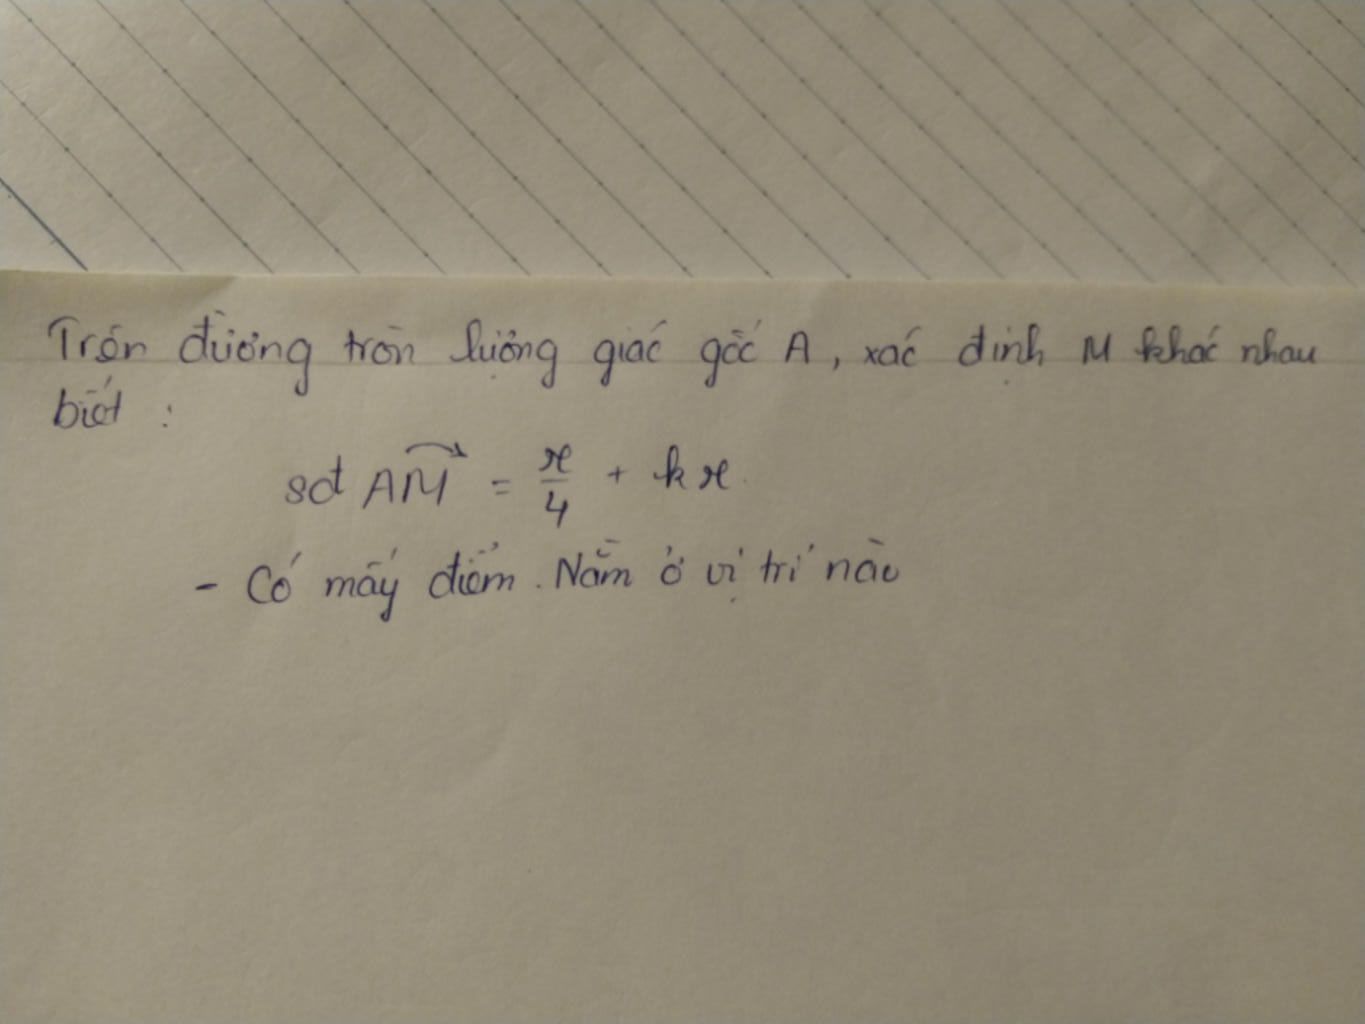 Trên đường tròn lượng giác gốc A, xác định M khác nhau
biết :
sđ AM = π/4 + kπ
- Có mấy điểm. Nằm ở vị trí nào